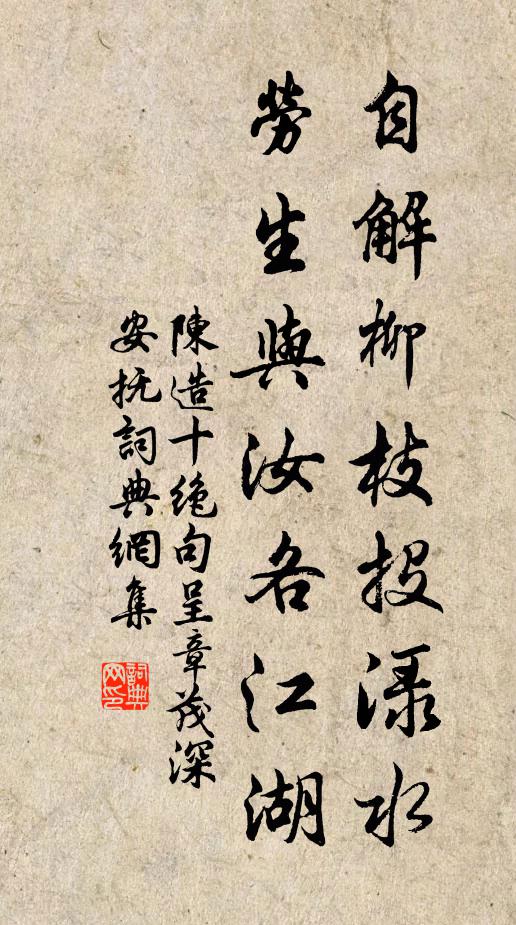 自解柳枝投渌水
勞生與汝各江湖
陳造十絶句呈章茂深
安抚詞典網集
詞典网印